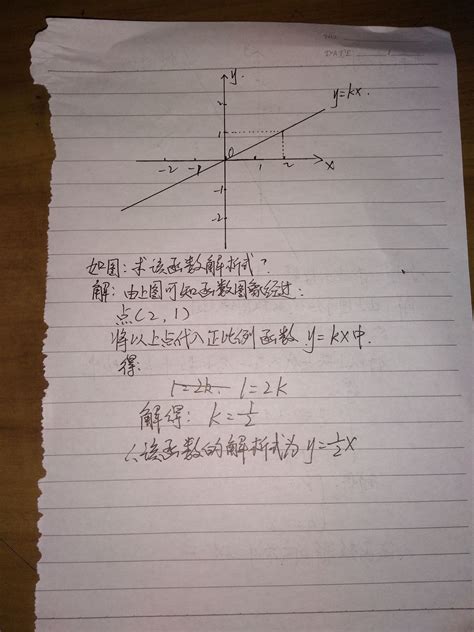 NO.
DATE
y.
y=kx.
2
1
-2 -1 0 1 2 x
-1
-2
如图:求该函数解析式?
解:由上图可知函数图象经过:
点(2,1)
将以上点代入正比例函数 y=kx中.
得:
1=2k. 1=2k
解得: k=1/2
∴该函数的解析式为 y=1/2x